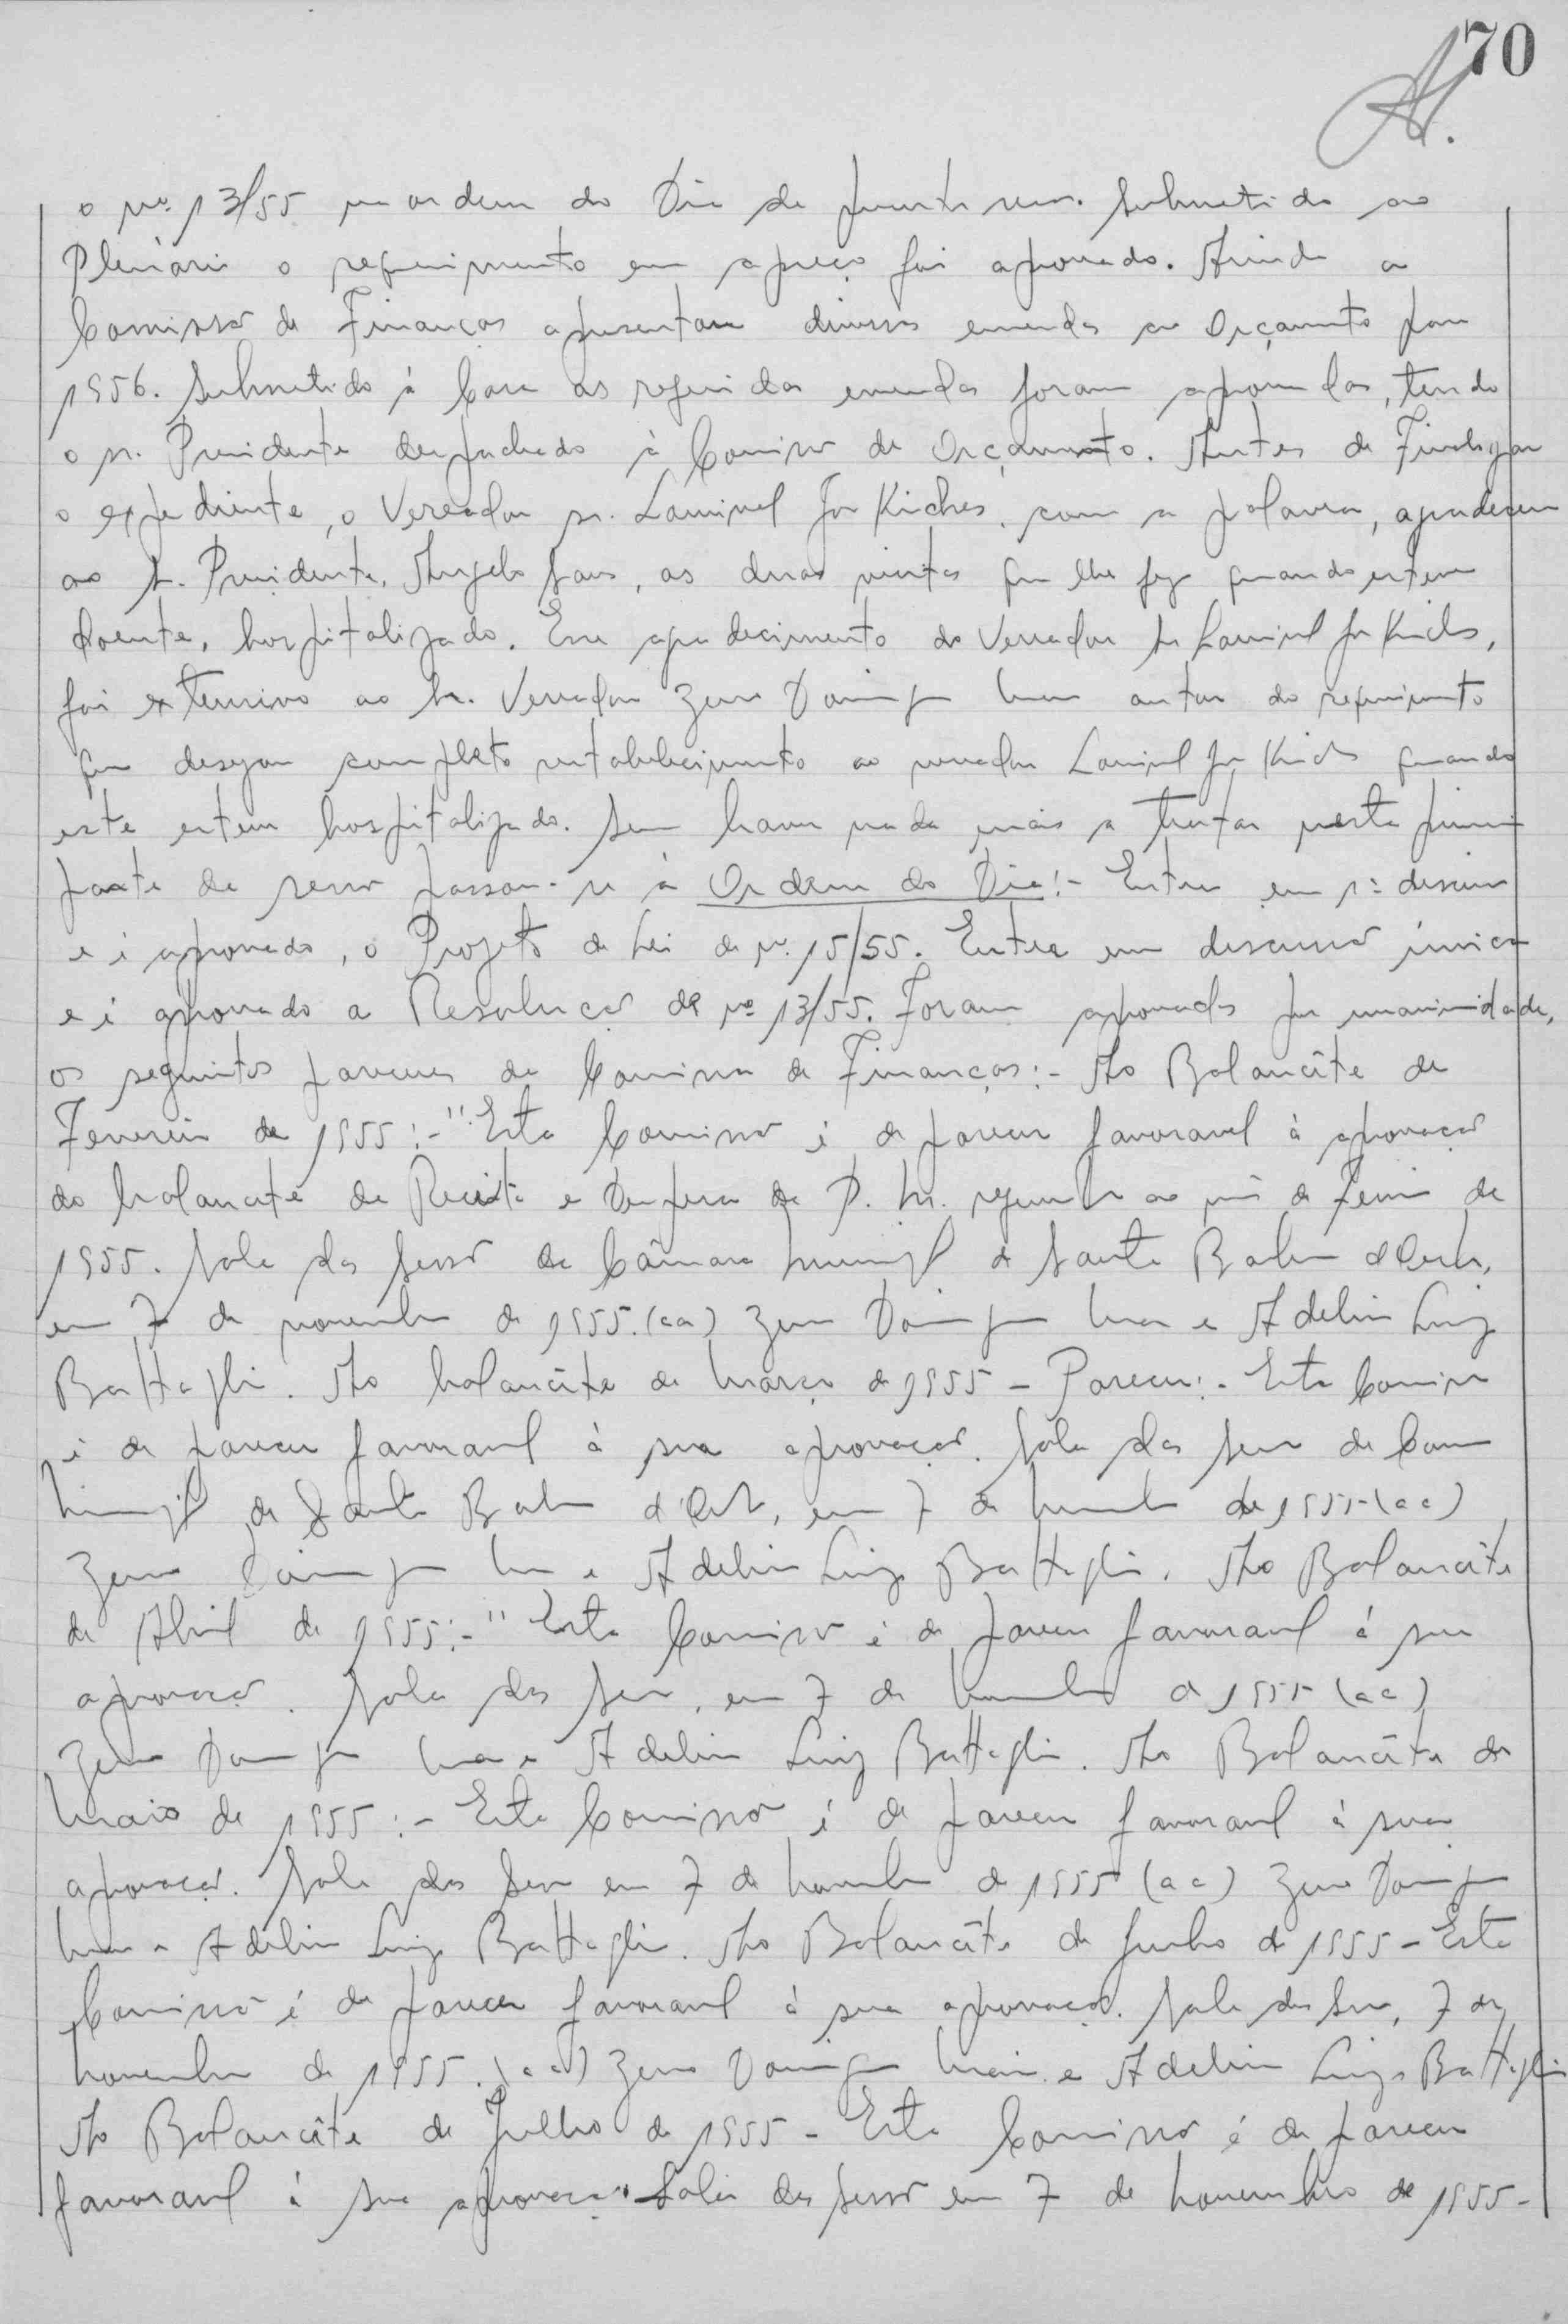 70
o nº 13/55 na ordem do Dia da presente sessão. Submetido ao
Plenário o requerimento em apreço foi aprovado. Ainda a
Comissão de Finanças apresentou diversas emendas ao Orçamento para
1956. Submetido à Casa as referidas emendas foram aprovadas, tendo
o sr. Presidente despachado à Comissão de Orçamento. Antes de Finalizar
o expediente, o Vereador sr. Laminel Jr Kiches, com a palavra, agradeceu
ao Sr. Presidente, Angelo Sans, as duas visitas que lhe fez quando esteve
doente, hospitalizado. Esse agradecimento do Vereador Sr Laminel Jr Kiches,
foi extensivo ao Sr. Vereador Zeno Domingos Maia autor do requerimento
que desejou completo restabelecimento ao vereador Laminel Jr Kiches quando
este esteve hospitalizado. Sem haver nada mais a tratar nesta primeira
parte da sessão passou-se à Ordem do Dia:- Entra em 1ª discussão
e é aprovado, o Projeto de Lei de nº 15/55. Entra em discussão única
e é aprovado a Resolução de nº 13/55. Foram aprovados por unanimidade,
os seguintes pareceres da Comissão de Finanças:- Ao Balancête de
Fevereiro de 1955:-"Esta Comissão é de parecer favoravel à aprovação
do balancête da Receita e Despesa da P. M. referente ao mês de Fevereiro de
1955. Sala das Sessões da Câmara Municipal de Santa Barbara d'Oeste,
em 7 de novembro de 1955. (aa) Zeno Domingos Maia e Adelino Luiz
Battagli. Ao balancête de Março de 1955 - Parecer:- Esta Comissão
é de parecer favoravel à sua aprovação. Sala das Sessões da Camara
Municipal de Santa Barbara d'Oeste, em 7 de Novembro de 1955-(aa)
Zeno Domingos Maia e Adelino Luiz Battagli. Ao Balancête
de Abril de 1955:-" Esta Comissão é de parecer favoravel à sua
aprovação. Sala das Sessões, em 7 de Novembro de 1955 (aa)
Zeno Domingos Maia e Adelino Luiz Battagli. Ao Balancête de
Maio de 1955:- Esta Comissão é de parecer favoravel à sua
aprovação. Sala das Sessões em 7 de Novembro de 1955 (aa) Zeno Domingos
Maia e Adelino Luiz Battagli. Ao Balancête de Junho de 1955 - Esta
Comissão é de parecer favoravel à sua aprovação. Sala das Sessões, 7 de
Novembro de 1955. (aa) Zeno Domingos Maia e Adelino Luiz Battagli
Ao Balancête de Julho de 1955 - Esta Comissão é de parecer
favoravel à sua aprovação. Sala das Sessões em 7 de Novembro de 1955-